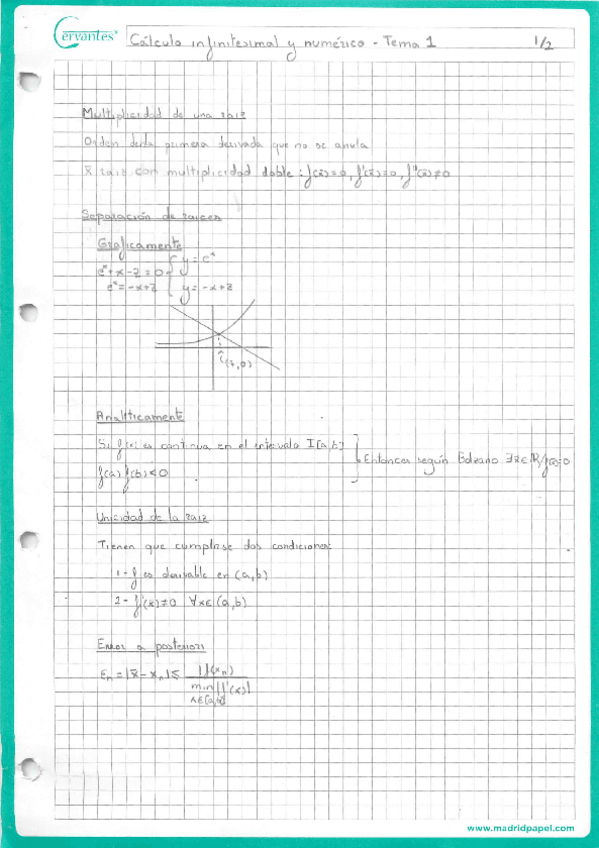 Cervantes
Cálculo infinitesimal y numérico - Tema 1
1/2
Multiplicidad de una raiz
Orden de la primera derivada que no se anula
x̄ raiz con multiplicidad doble: f(x̄)=0, f'(x̄)=0, f''(x̄)≠0
Separación de raices
Graficamente
eˣ+x-2=0 { y=eˣ
eˣ=-x+2 { y=-x+2
(x̄,0)
Analíticamente
Si f(x) es continua en el intervalo I[a,b]
f(a)·f(b)<0
Entonces según Bolzano ∃x̄∈ℝ/f(x̄)=0
Unicidad de la raiz
Tienen que cumplirse dos condiciones:
1- f es derivable en (a,b)
2- f'(x)≠0 ∀x∈(a,b)
Error a posteriori
Eₙ=|x̄-xₙ|≤ |f(xₙ)|
min|f'(x)|
x∈[a,b]
www.madridpapel.com